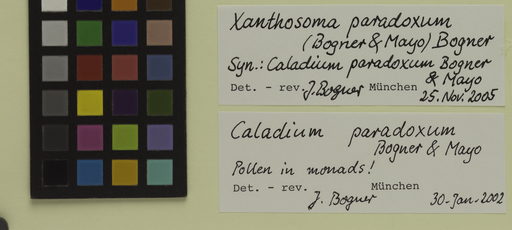 Xanthosoma paradoxum
(Bogner & Mayo) Bogner
Syn.: Caladium paradoxum Bogner
& Mayo
Det. - rev. J. Bogner München
25. Nov. 2005
Caladium paradoxum
Bogner & Mayo
Pollen in monads!
Det. - rev. München
J. Bogner 30-Jan.-2002